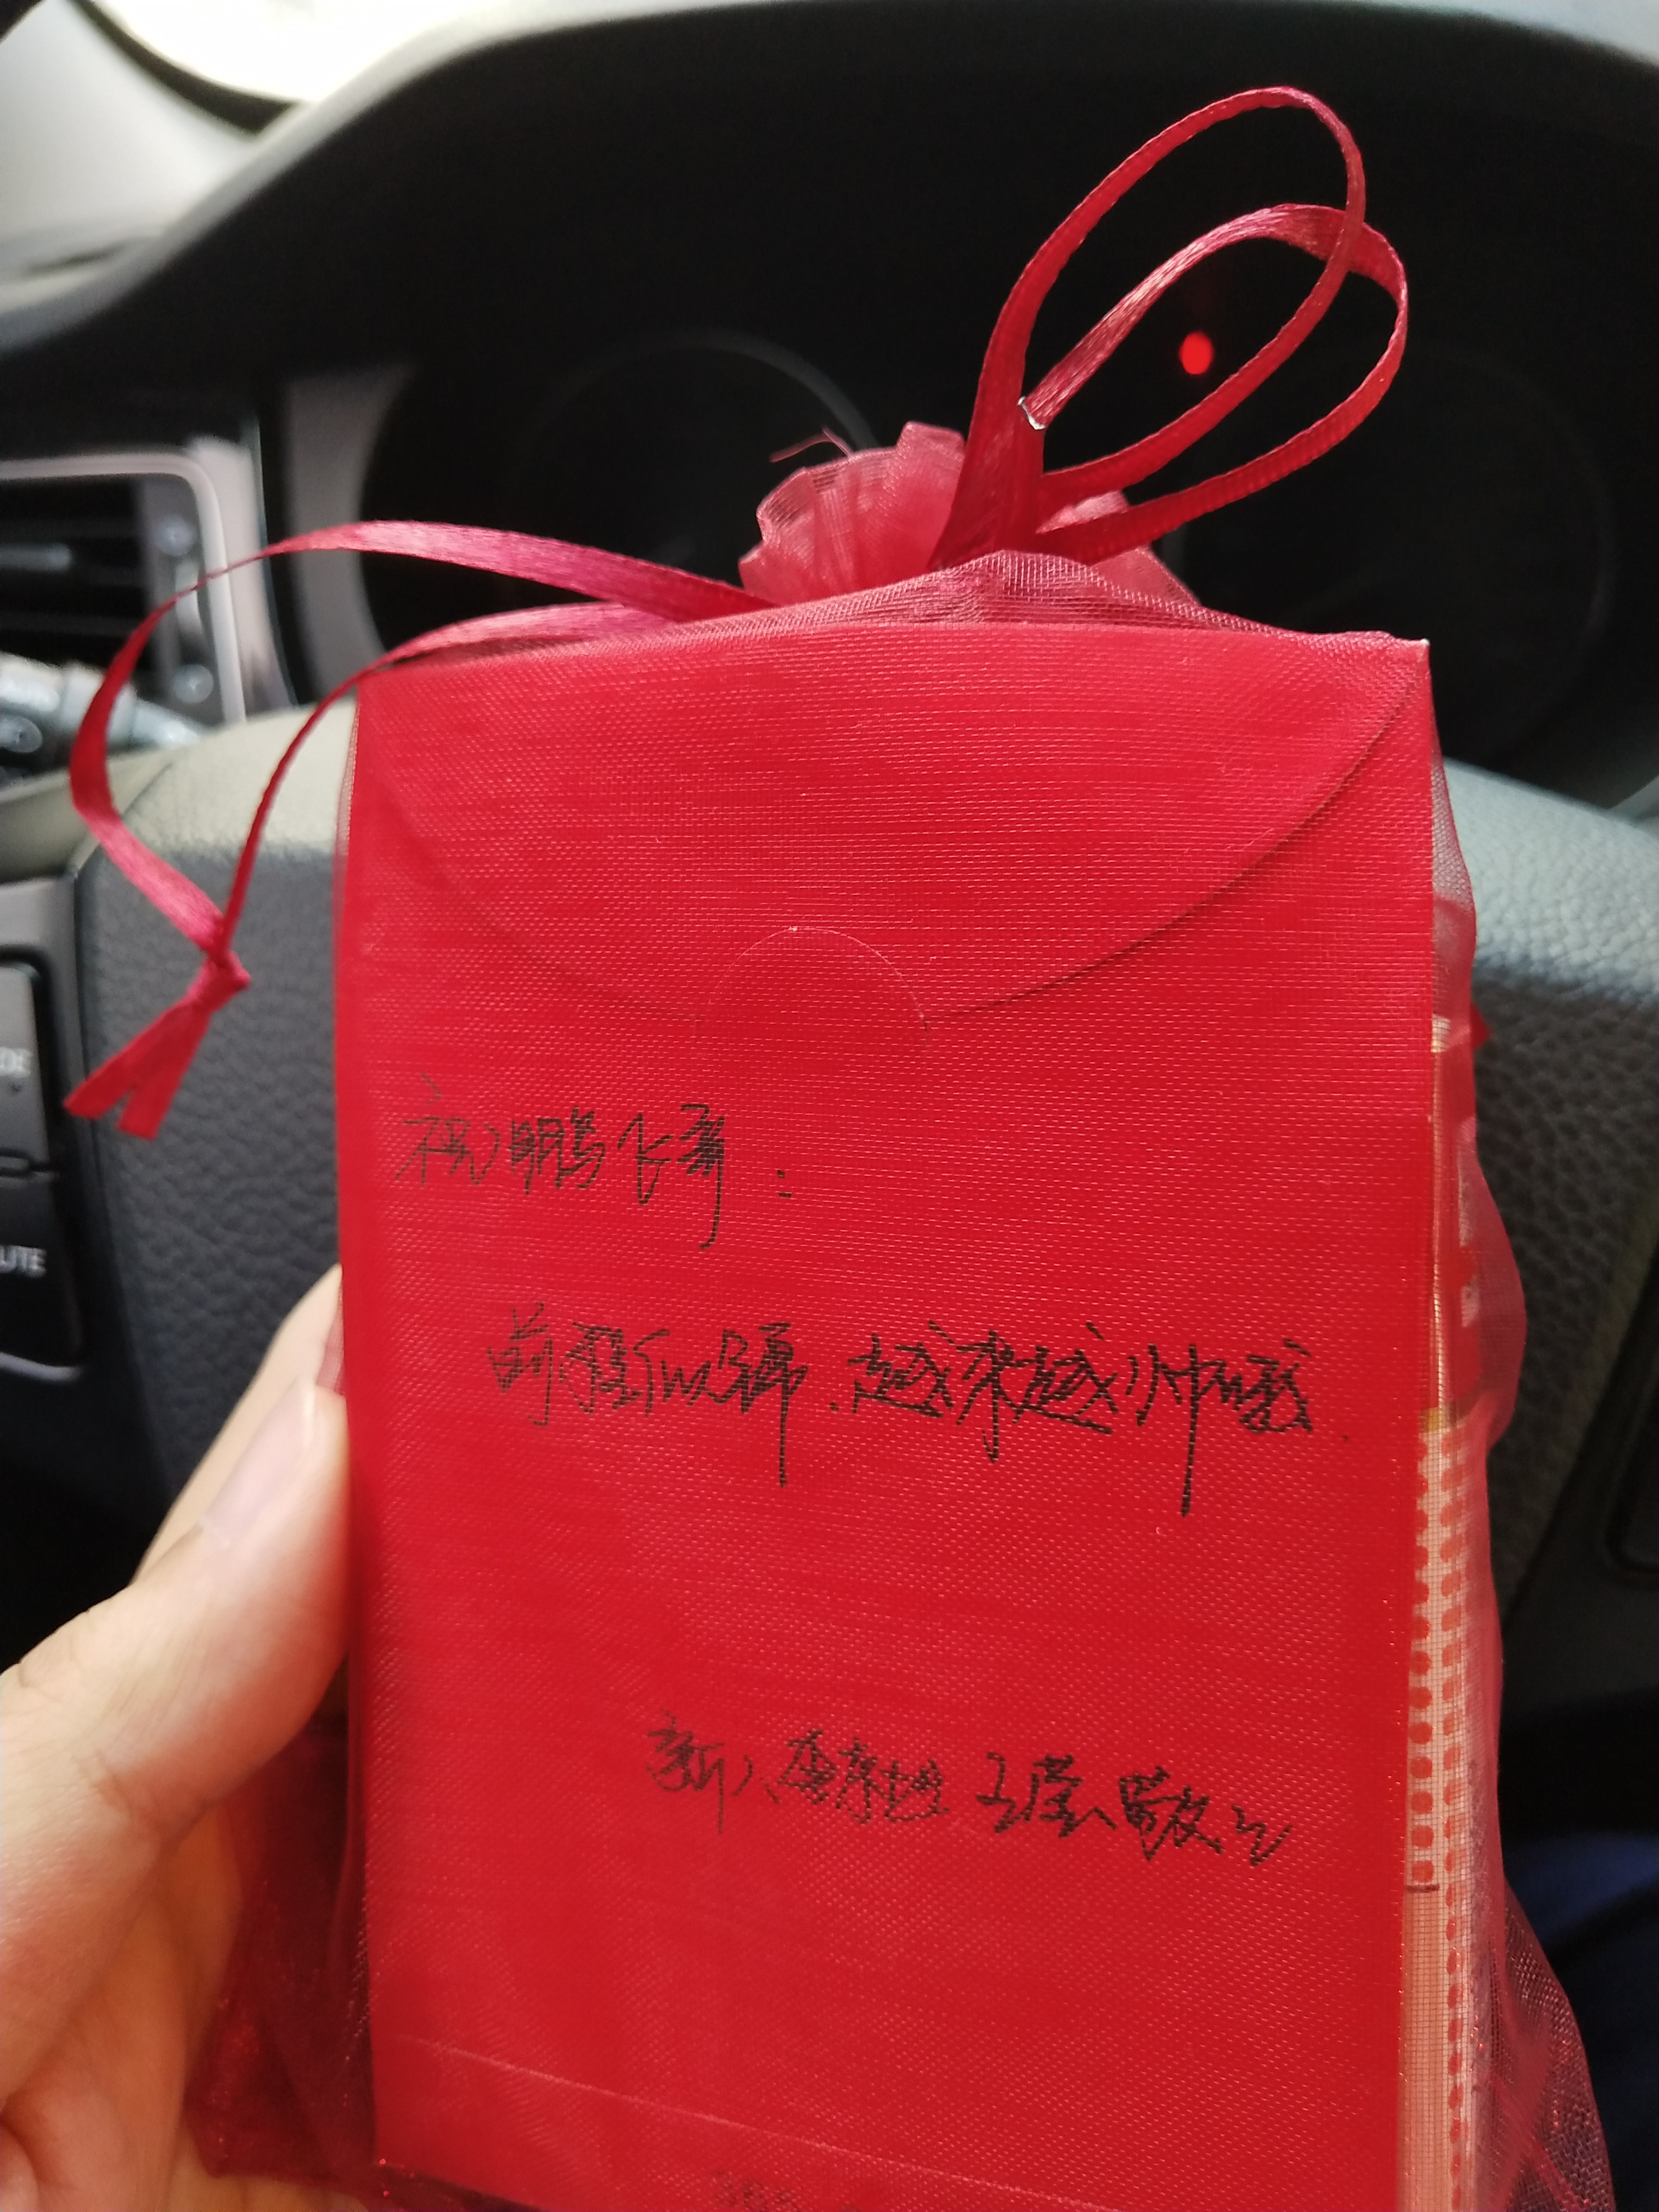 祝鹏飞哥：
前程似锦.越来越帅哦.
新人李 王莹敬上
DE
UTE